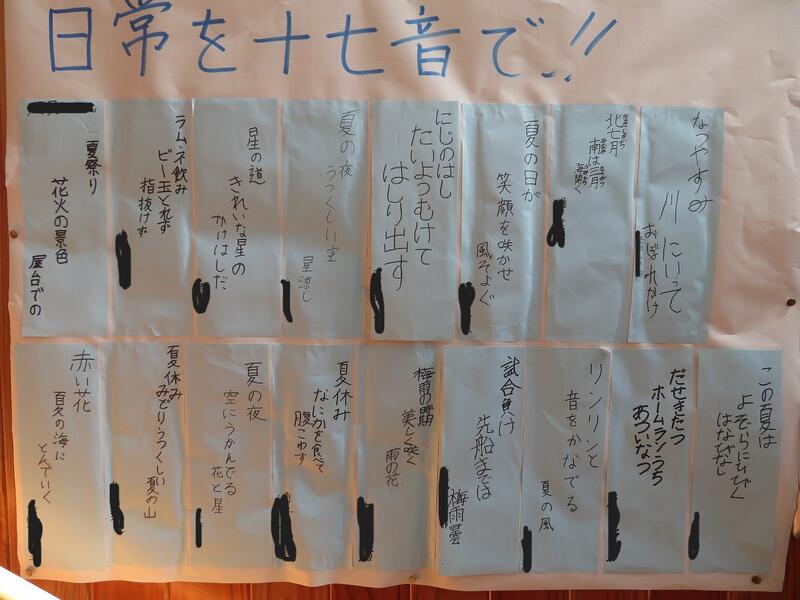 日常を十七音で!!
なつやすみ
川にいって
おぼれかけ
北七月
南は三月
海開く
夏の日が
笑顔を咲かせ
風そよぐ
にじのはし
たいようむけて
はしり出す
夏の夜
うつくしい空
星涼し
星の道
きれいな星の
かけはしだ
ラムネ飲み
ビー玉とれず
指抜けず
夏祭り
花火の景色
屋台での
この夏は
よぞらにひびく
はなびなし
だせきたつ
ホームランうち
あついなつ
リンリンと
音をかなでる
夏の風
試合負け
先船までは
梅雨曇
梅雨の時期
美しく咲く
雨の花
夏休み
なにかを食て
腹こわす
夏の夜
空にうかんでる
花と星
夏休み
みどりうつくしい
夏の山
赤い花
夏の海に
とんでいく